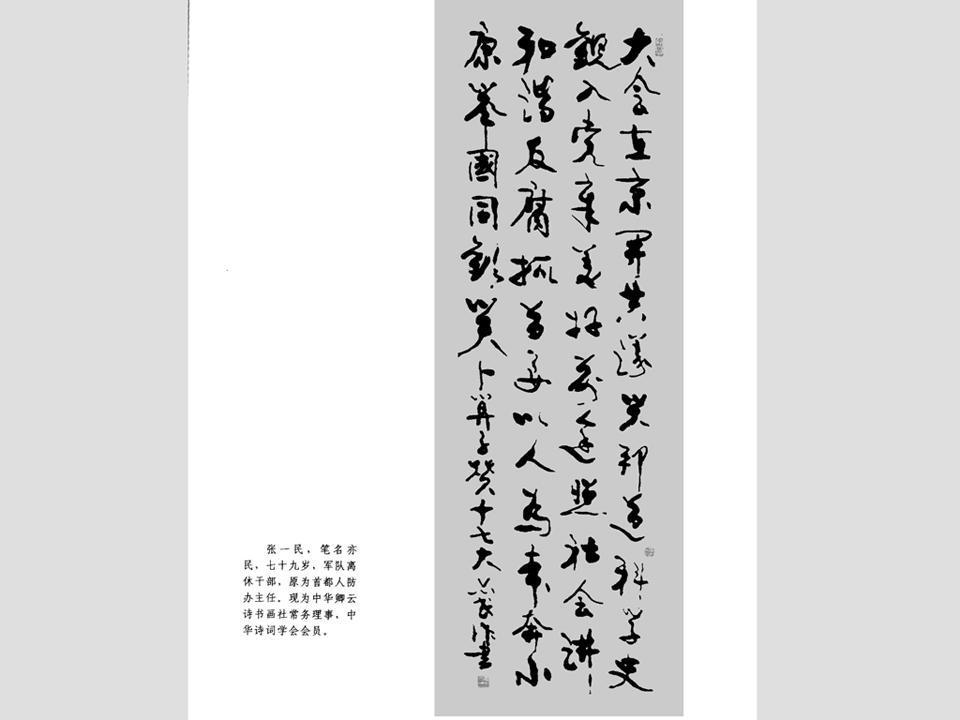 大会在京開共議兴邦道科學史
觀入党章美好前途照社会講
和谐反腐抓首要以人為本奔小
康举國同歡笑卜算子贺十七大亦民作書
张一民，笔名亦
民，七十九岁，军队离
休干部，原为首都人防
办主任。现为中华卿云
诗书画社常务理事，中
华诗词学会会员。